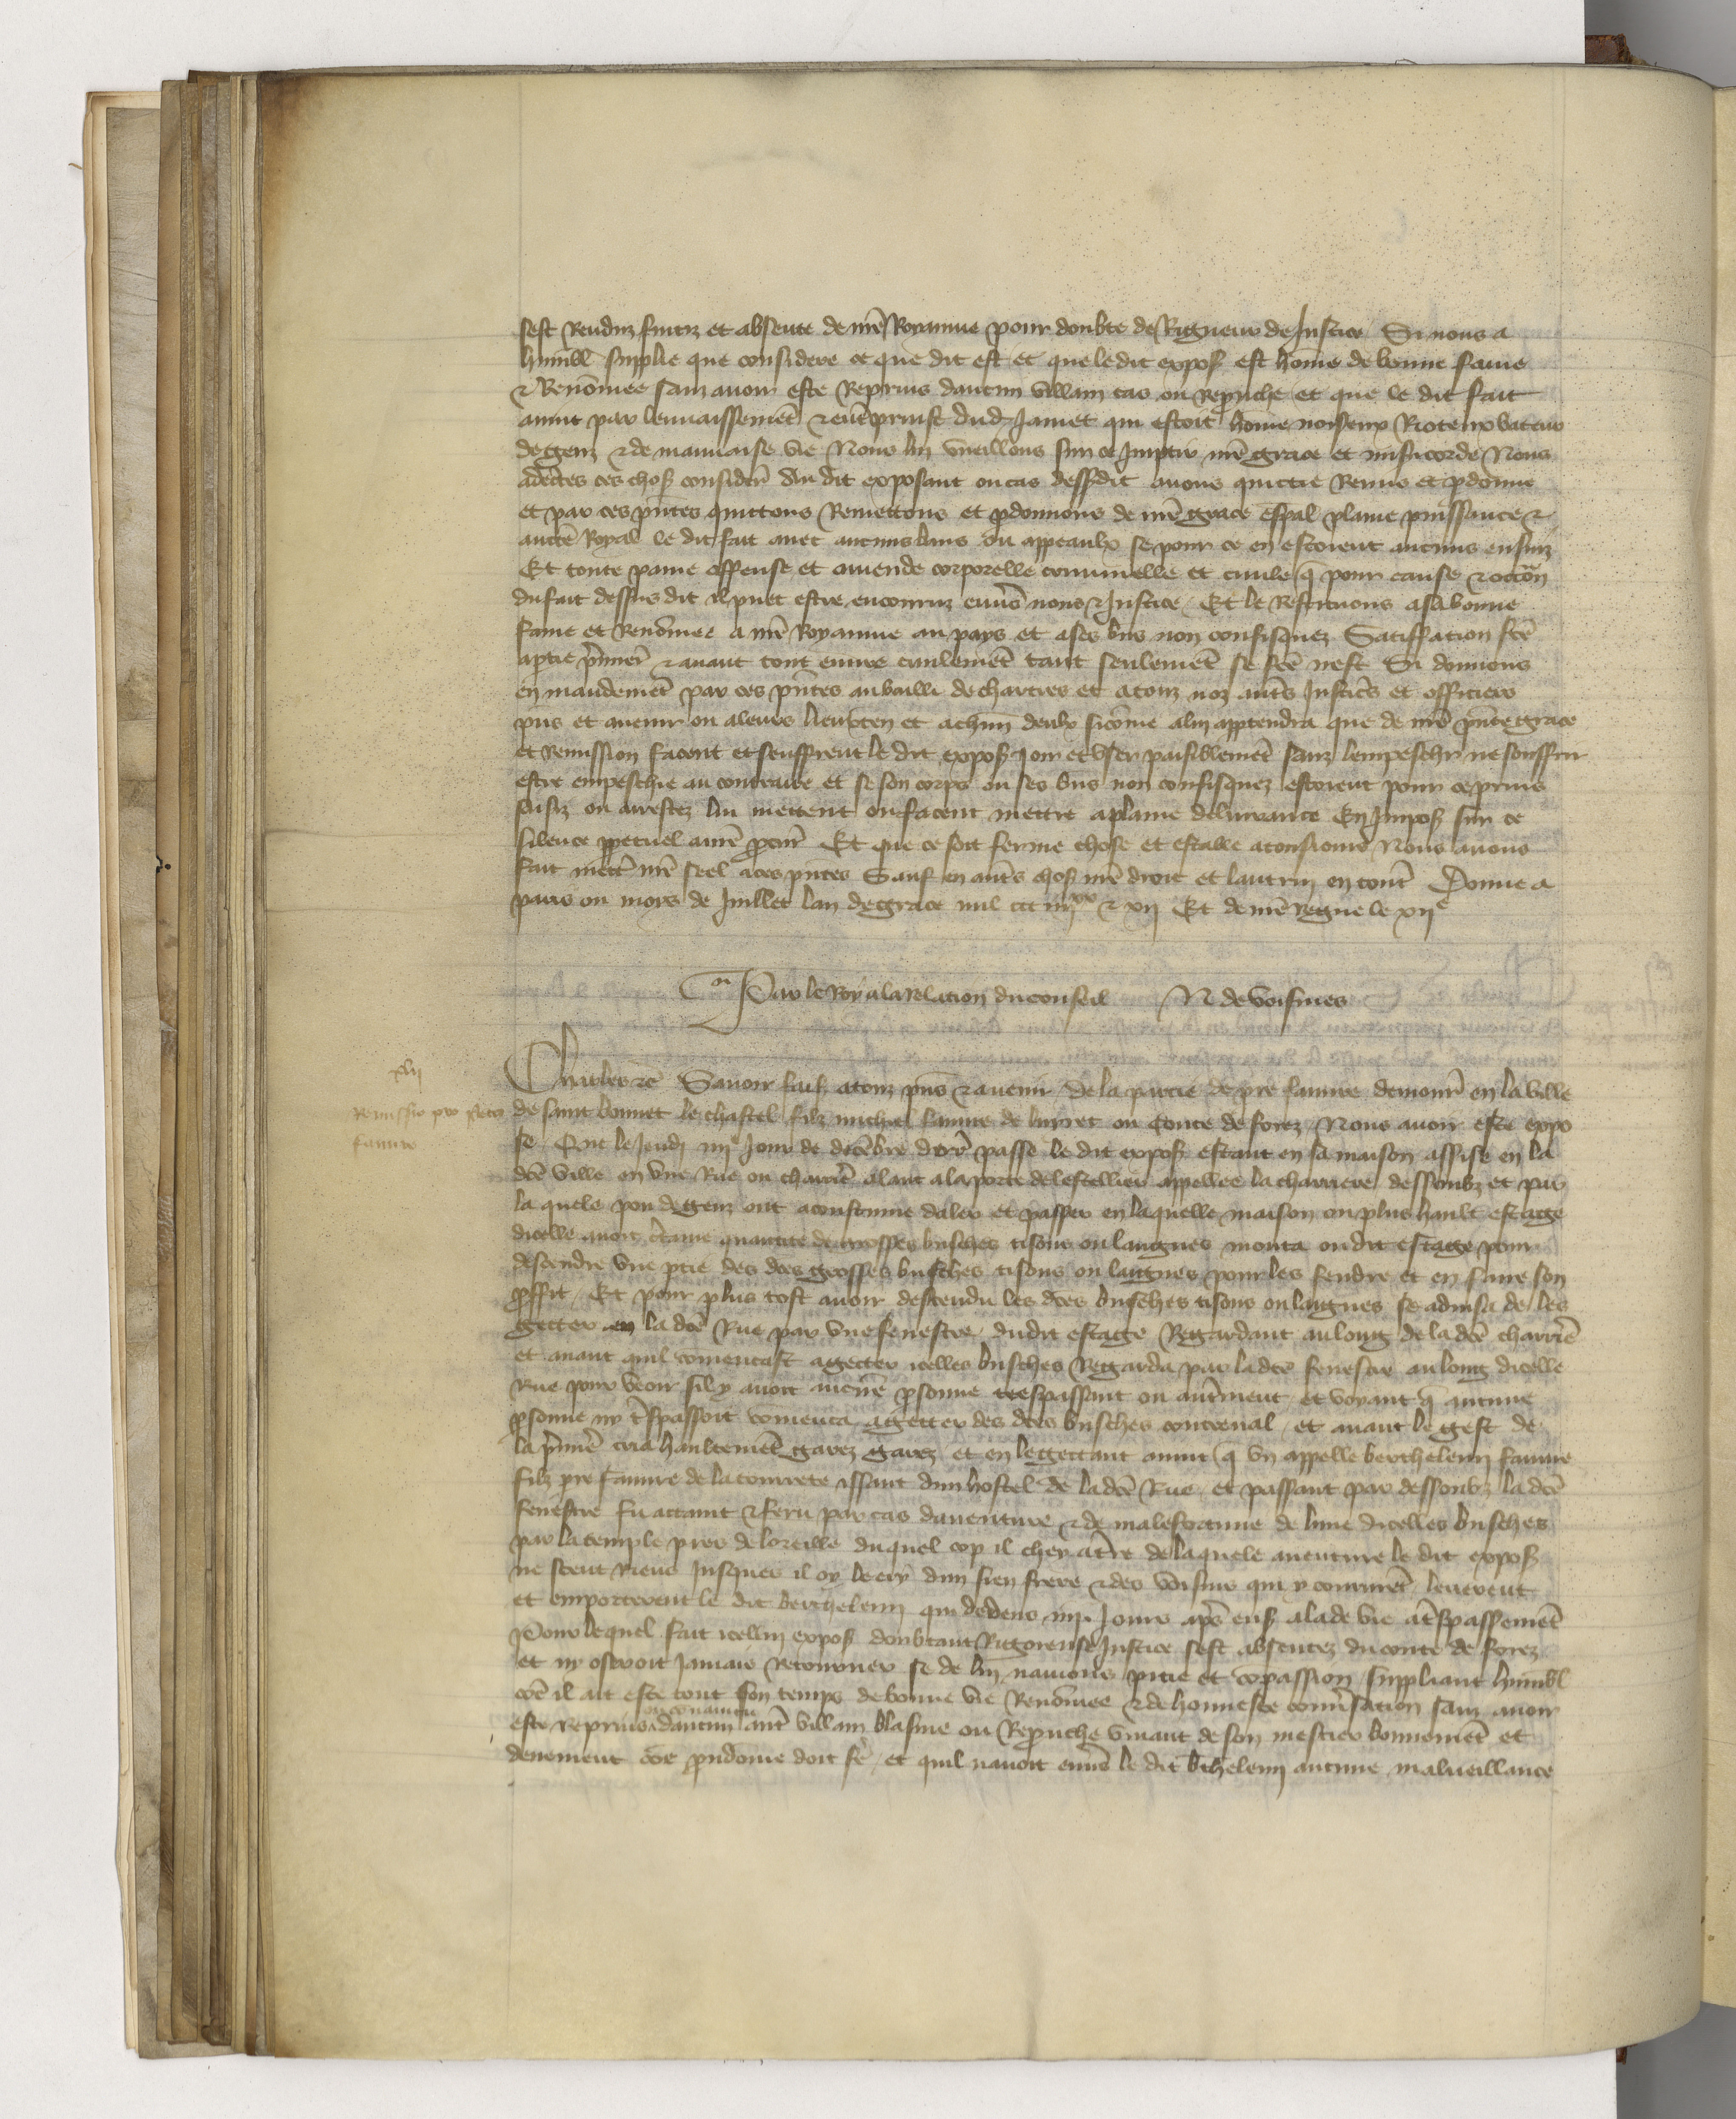 sest renduz fuitiz et absente de nr̄e Royaume pour doubte de Rigueur de Justice Si nous a
humbl supplie que considere ce que dit est et que le dit expos est hōme de bonne fame
& Renōmee sanz avoir este Reprins daucun villain cas ou reprouche et que le dit fait
avint par et dud Jamet qui estoit hōme noiseux Rioteux bateur
de genz & de mauvaise vie Nous lui vueillons sur ce Impartir nr̄e grace et misericorde Nous
adcētes ces choses considere au dit exposant ou cas dessusdit avons quictie Remis et pdonne
et par ces pn̄tes quittons Remettons et pdonnons de nr̄e grace espal plaine puissance &
auctē Royal le dit fait avec aucuns bans ou appeaulx se pour ce en estoient aucuns ensuiz
Et toute paine offense et amende corporelle criminelle et civile q̄ pour cause & occōn
du fait dessus dit il puet estre encouruz envs nous & Justice Et le Restituons a sa bonne
fame et Renōmee a nr̄e Royaume au pays et a ses bns non confisquez Satisfation fcē
a ptie pmier & avant tout euvre civilemēt tant seulemēt se fcē nest Si donnons
en mandemēt par ces pn̄tes au bailli de chartres et a touz noz autr̄s Justiciers et officiers
pns et avenir ou a leurs lieuxten et a chūn deulx si cōme a lui apptendra que de nr̄e pn̄te grace
et Remission facent et seuffrent le dit expos Joir et user paisiblemēt sanz lempeschr ne souffrir
estre empeschie au contraire et se son corps ou ses bns non confisquez estoient pour ce prins
saisiz ou arrestez lui mettent ou facent mettre a plaine delivrance En Impos sur ce
silence ppetuel a nr̄e pcur Et que ce soit ferme chose et estable a tousiours Nous avons
fait mettr̄ nr̄e seel a ces pn̄tes Sauf en autr̄s choses nr̄e droit et lautrui en tout Donne a
paris ou moys de Juillet lan de grace mil ccc iiijxx & xij Et de nr̄e Regne le xije
Par le Roy a la relation du conseil N de voisines
xlij
Remissio pro petro
faure
Charles &c Savoir fais a touz pns & avenir de la partie de pre faure demour en la ville
de saint bonnet le chastel filz michiel faure de lurret ou Conte de forez Nous avoir este expo
se Que le Jeudi iiije Jour de decēbre dere passe le dit expos estant en sa maison assise en la
dcē ville en une Rue ou charrē alant a la porte de lestellier appellee la charriere dessoubz et par
la quele pou de genz ont acoustume daler et passer en laquelle maison ou plus hault estage
dicelle avoit c̄taine quantite de grosses busches tisons ou laignes monta ou dit estage pour
descendre une ptie des dces grosses busches tisons ou laignes pour les fendre et en faire son
proffit Et pour plus tost avoir descendu les dces busches tisons ou laignes se advisa de les
getter en la dcē Rue par une fenestre du dit estage Regardant au long de la dcē charrē
et avant quil cōmencast a getter icelles busches Regarda par la dce fenestre au long dicelle
Rue pour veoir sil y avoit aucūe psonne trespassant ou autr̄ment et voyant q̄ aucune
psonne ny trespassoit cōmenca a getter des dces busches contreval et avant le gest de
la pmiere cria haultemēt garez garez et en le gettant avint q̄ un appelle berthelemi faure
filz pre faure de la issant dun hostel de la dcē Rue et passant par dessoubz la dcē
fenestre fu attaint & feru par cas daventure & de malefortune de lune dicelles busches
par la temple pres de loreille duquel cop il chey a terre de laquele aventure le dit expos
ne sceut Riens Jusques il oy le cry dun sien frere & des voisins qui y coururēt leverent
et emporterent le dit berthelemi qui dedens iiij Jours aps ens ala de vie a tspassemēt
Pour lequel fait icellui expos doubtant Rigoreuse Justice sest absentez du conte de forez
et ny oseroit Jamais Retourner se de lui navions pitie et cōpassion suppliant humbl
cōe il ait este tout son temps de bonne vie Renōmee & de honneste convsation sanz avoir
este reprins daucun autr̄ villain blasme ou Reprouche vivant de son mestier bonnemēt et
deuement cōe prudōme doit fe et quil navoit envs le dit bthelemi aucune malveillance